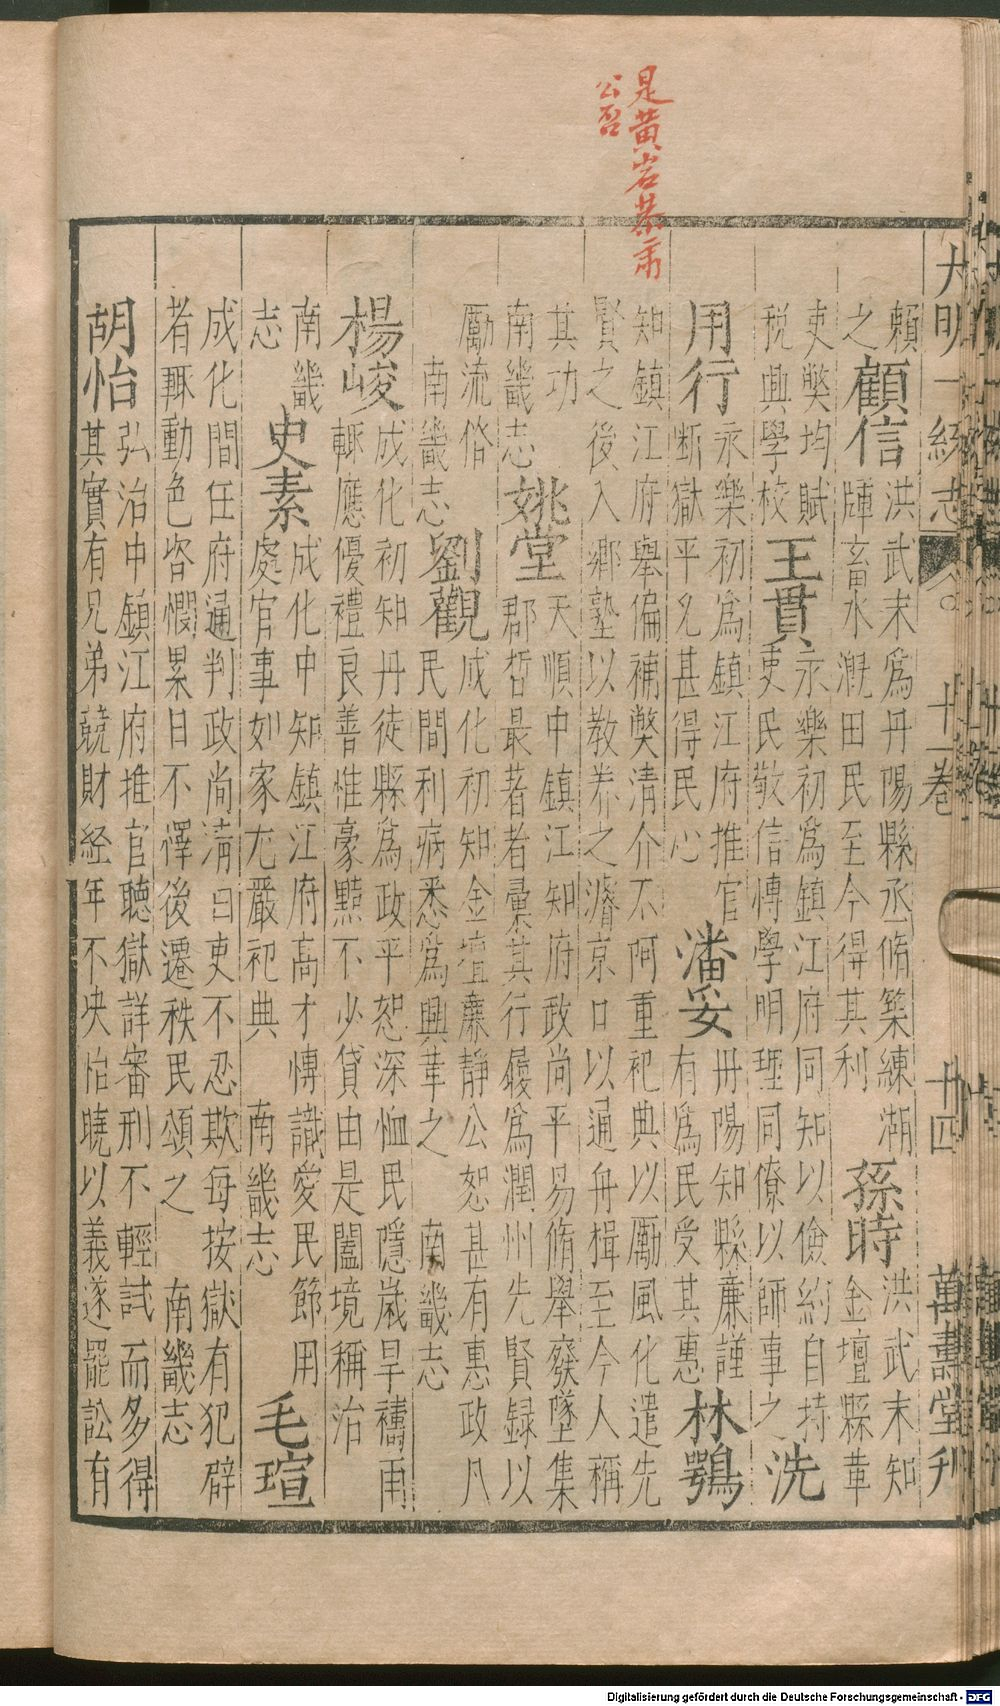 大明一統志 十一卷 廿四 萬壽堂刋
賴
之
顧信
洪武末爲丹陽縣丞脩築練湖
障畜水溉田民至今得其利
孫時
洪武末知
金壇縣革
吏獘均賦
稅興學校
王貫
永樂初爲鎮江府同知以儉約自持
吏民敬信博學明理同僚以師事之
冼
用行
永樂初爲鎮江府推官
斷獄平允甚得民心
潘妥
丹陽知縣廉謹
有爲民受其惠
林鶚
知鎮江府舉偏補獘清介不阿重祀典以勵風化遣先
賢之後入鄉塾以教养之濬京口以通舟楫至今人稱
其功
南畿志
姚堂
天順中鎮江知府政尚平易脩舉廢墜集
郡哲最著者彙其行履爲潤州先賢録以
勵流俗
南畿志
劉觀
成化初知金壇廉靜公恕甚有惠政凡
民間利病悉爲興革之 南畿志
楊峻
成化初知丹徒縣爲政平恕深恤民隱嵗旱禱雨
輙應優禮良善惟豪黠不少貸由是闔境稱治
南畿
志
史素
成化中知鎮江府高才博識愛民節用
處官事如家尤嚴祀典 南畿志
毛瑄
成化間任府通判政尚清白吏不忍欺每按獄有犯辟
者輙動色咨憫累日不懌後遷秩民頌之 南畿志
胡怡
弘治中鎮江府推官聽獄詳審刑不輕試而多得
其實有兄弟競財経年不决怡曉以義遂罷訟有
是黃岩恭肅
公否
Digitalisierung gefördert durch die Deutsche Forschungsgemeinschaft - DFG